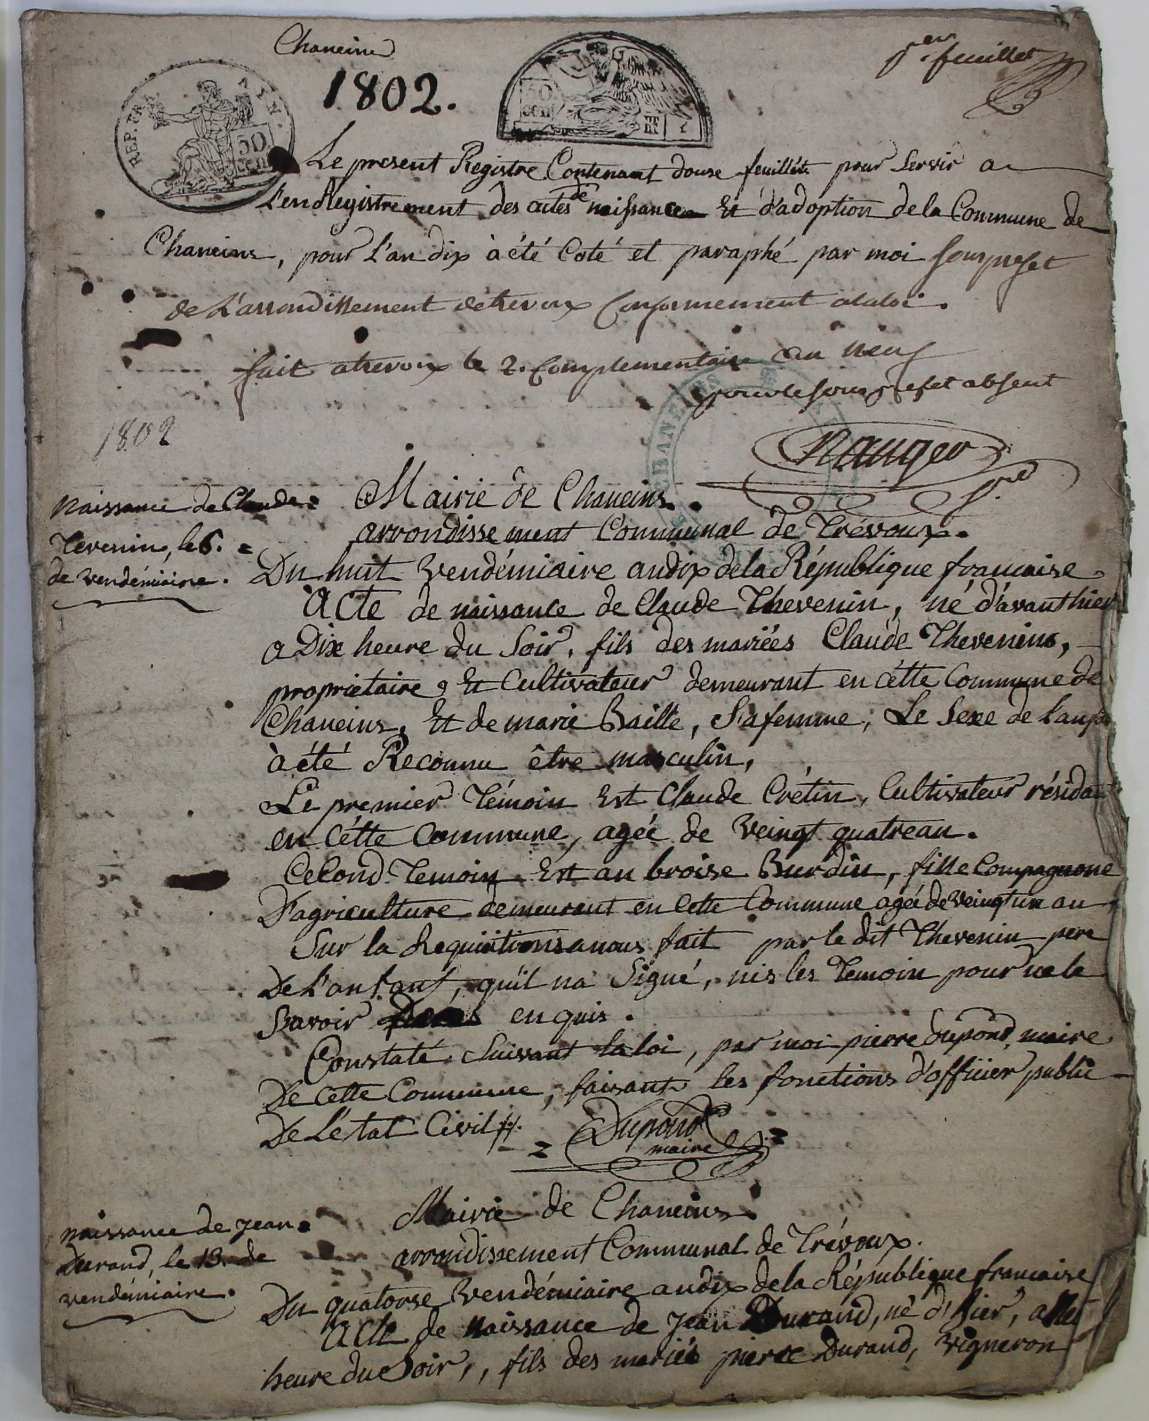 Chaneins
1802.
1er feuillet
REP. FRA.
50
Le present Registre Contenant douse feuillets pour Servir a
L'enRegistrement des actes de naissance Et d'adoption de la Commune de
Chaneins, pour L'an dix à été Coté et paraphé par moi souprefet
de L'arrondissement detrevoux Conformement alaloi.
fait atrevoux le 2. Complementaire an neuf
pourlesouprefet absent
Nauger
1802
Naissance de Claude
Tevenin, le 6.
de vendémiaire.
Mairie de Chaneins.
arrondissement Communal de Trévoux.
Du huit Vendémiaire andix dela République francaise
Acte de naissance de Claude Thevenin, né d'avanthier
a Dix heure du Soir, fils des mariées Claude Thevenin,
propriétaire, Et Cultivateur demeurant en cétte Commune de
Chaneins, Et de marie Baille, Safemme, Le Sexe de
à été Reconnu être masculin,
Le premier Témoin Est Claude Crétin, Cultivateur résidant
en Cétte Commune, agée de Veingt quatrean.
Cecond Temoin Est anbroise Burdin, fille Compagnone
D'agriculture demeurent en Cette Commune agée de Veingt un an
Sur la Requiitions a nous fait par le dit Thevenin pere
De l'anfant, qu'il na Signé, nis les Temoin pour ne le
Savoir enquis.
Constaté Suivant la loi, par moi pierre Dupond, maire
De cette Commune, faisant les fonctions d'offiier public
De L'état Civil.
Dupond
maire
naissance de jean
Durand, le 13. de
vendémiaire.
Mairie de Chaneins.
arrondissement Communal de Trévoux.
Du quatorse Vendémiaire andix dela République francaise
Acte de Naissance de jean Durand, né d'hier,
heure du Soir,, fils des mariés pierre Durand, vigneron